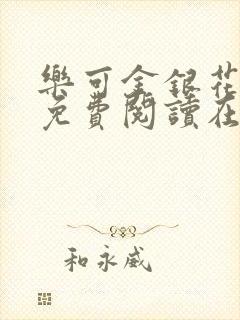 樂可金銀花
免費閱讀在
和永威